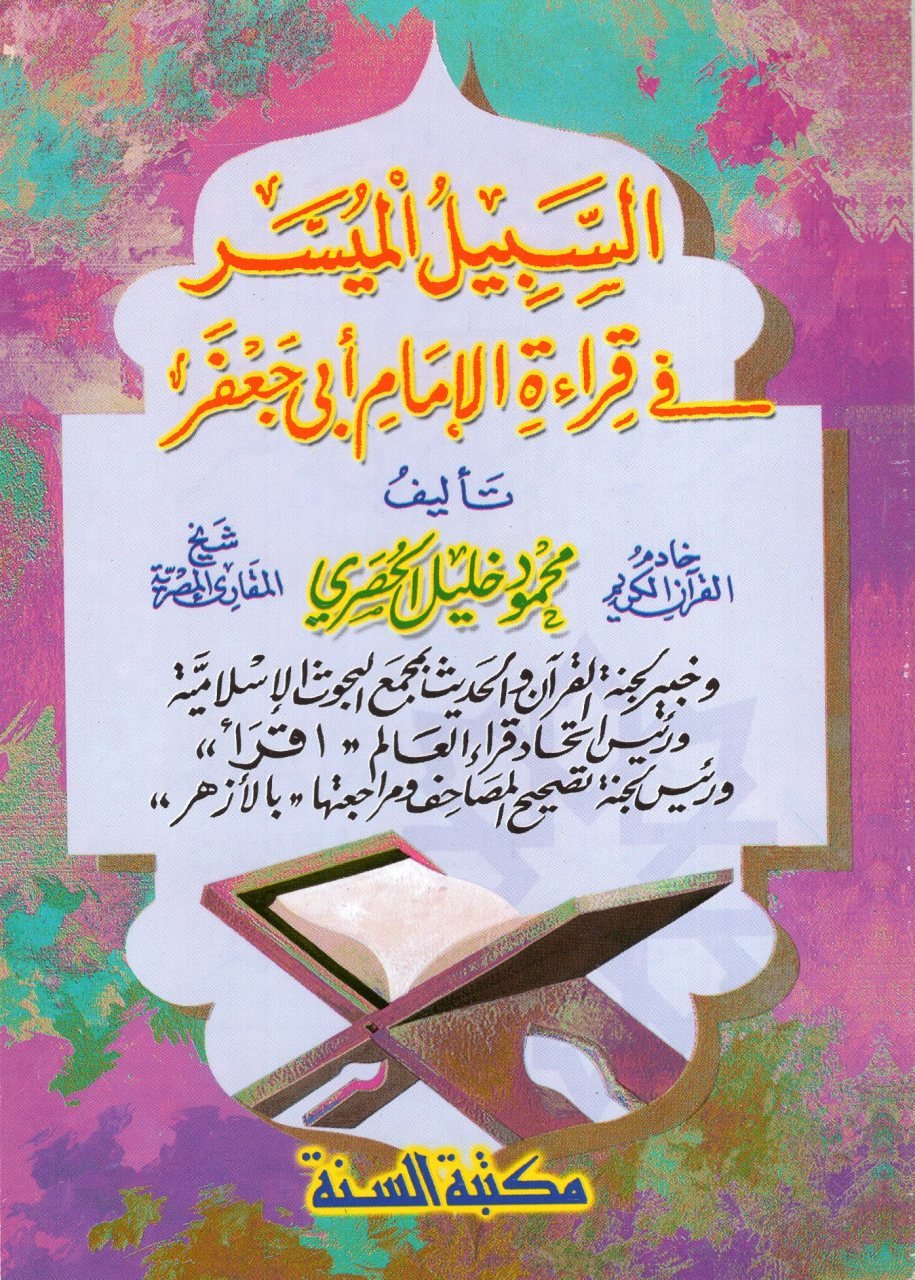 السَّبِيلُ الْمُيَسَّر
في قِرَاءةِ الإمَامِ أبي جَعْفَر
تَأليفُ
خادم القرآن الكريم
محمود خليل الحُصَري
شَيخ المقارئ المصرية
وخبير لجنة القرآن والحَديث بمجمَع البحوث الإسْلاميَّة
ورئيس اتحاد قراء العَالم "اقرَأ"
ورئيس لجنة تصحيح المصَاحف ومراجعتها "بالأزهر"
مكتبة السنة